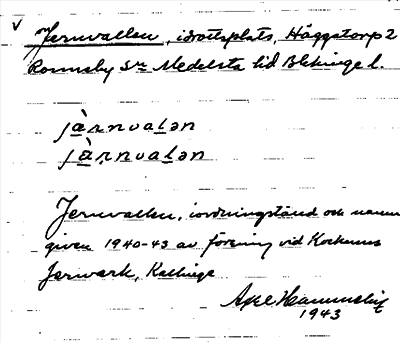 v
Jernvallen, idrottsplats, Häggatorp 2
Ronneby sn Medelsta hd Blekinge l.
jàrnvalən
jàrnvalən
Jernvallen, iordningställd och namn
given 1940-43 av förening vid Kockums
Jernverk, Kallinge
Axel Hammarlöf
1943